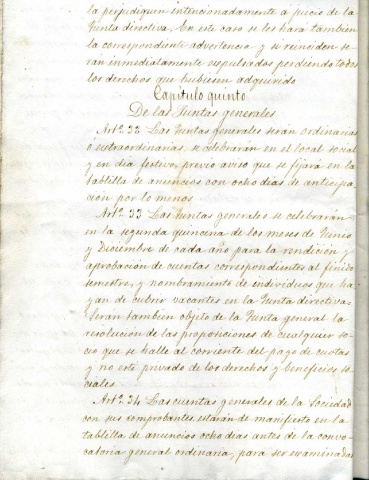 la perjudiquen intencionadamente a juicio de la
Junta directiva. En este caso se les hará tambien
la correspondiente advertencia y si reinciden se-
ran inmediatamente espulsados perdiendo todos
los derechos que hubiesen adquirido
Capitulo quinto
De las Juntas generales
Artº. 32 Las Juntas generales serán ordinarias
ó extraordinarias, se celebrarán en el local social
y en dia festivo, previo aviso que se fijará en la
tablilla de anuncios con ocho dias de anticipa
cion por lo menos
Artº. 33 Las Juntas generales se celebrarán
en la segunda quincena de los meses de Junio
y Diciembre de cada año para la rendicion y
aprobación de cuentas correspondientes al finido
semestre, y nombramiento de individuos que ha-
yan de cubrir vacantes en la Junta directiva.
Serán tambien objeto de la Junta general la
resolución de las proposiciones de cualquier so-
cio que se halle al corriente del pago de cuotas
y no esté privado de los derechos y beneficios so-
ciales
Artº. 34 Las cuentas generales de la Sociedad
con sus comprobantes estarán de manifiesto en la
tablilla de anuncios ocho dias antes de la convo-
catoria general ordinaria, para ser examinadas